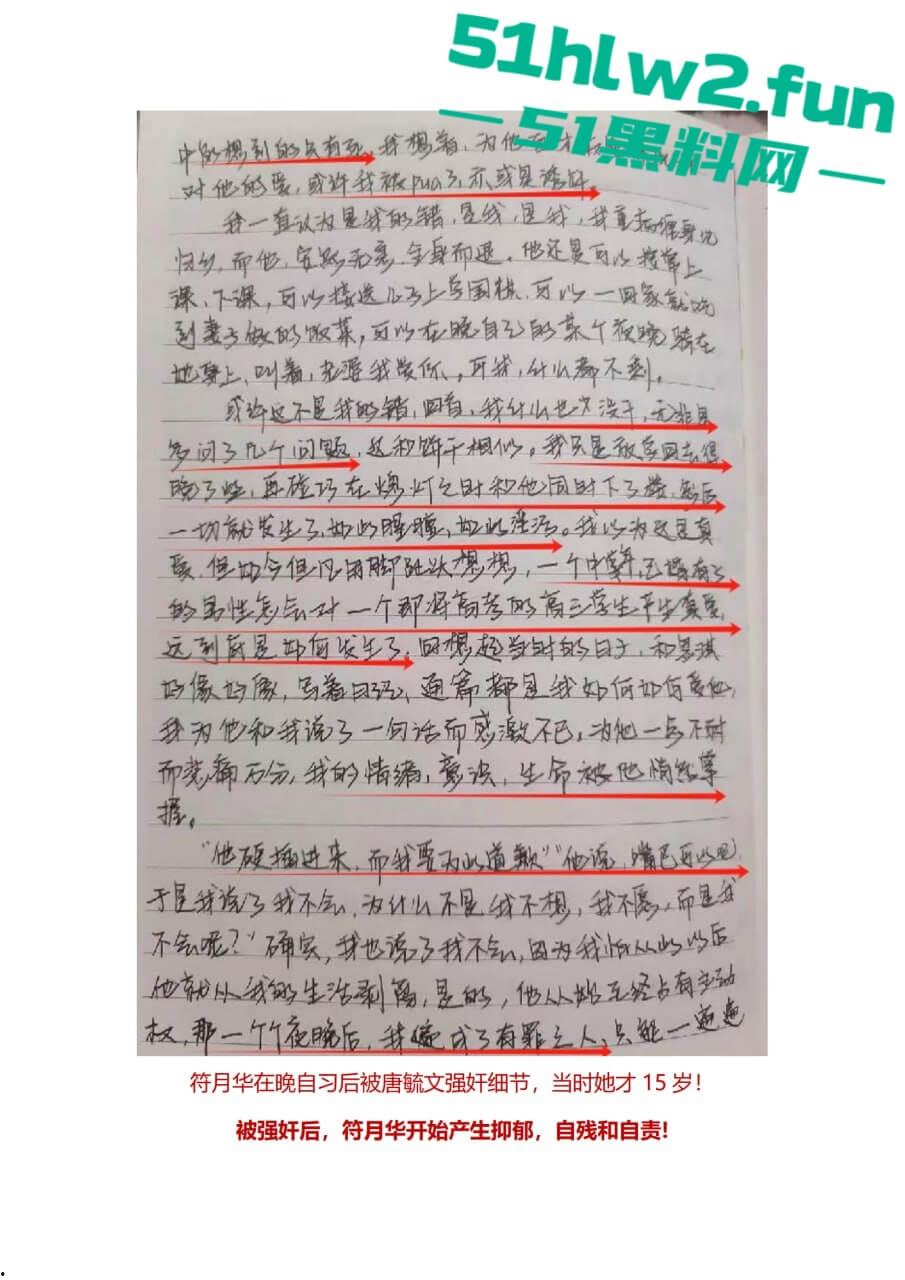 51hlw2.fun
51黑料网
中的想到的只有死。我想着，为他
对他的爱，或许我被pua了，亦或是诱奸。
我一直认为是我的错，是我，是我，我
归乡，而他，安然无恙，全身而退。他还是可以按部上
课，下课，可以接送儿子上学围棋，可以一回家就吃
到妻子做的饭菜，可以在晚自习的某个夜晚骑在
她身上，叫着，老婆我爱你。可我，什么都不剩。
或许这不是我的错，回首，我什么也没干，无非是
多问了几个问题，我只是放学回去得
晚了些，再碰巧在熄灯之时和他同时下了楼，然后
一切就发生了，如此腥膻，如此淫污。我以为这是真
爱，但如今但凡用脚趾头想想，一个中年，已婚有子
的男性怎会对一个即将高考的高三学生产生真爱，
这到底是如何发生了，回想起当时的日子，和思琪
好像好像，写着日记，通篇都是我如何如何爱他，
我为他和我说了一句话而感激不已，为他一点不耐
而悲痛万分，我的情绪，意识，生命被他悄然掌
握。
“他硬插进来，而我要为此道歉”“他说，嘴巴可以吧，
于是我说了我不会，为什么不是我不想，我不愿，而是我
不会呢？”确实，我也说了我不会，因为我怕从此以后
他就从我的生活剥离，是的，他从始至终占有主动
权，那一个个夜晚后，我便成了有罪之人，只能一遍遍
符月华在晚自习后被唐毓文强奸细节，当时她才 15 岁！
被强奸后，符月华开始产生抑郁，自残和自责！